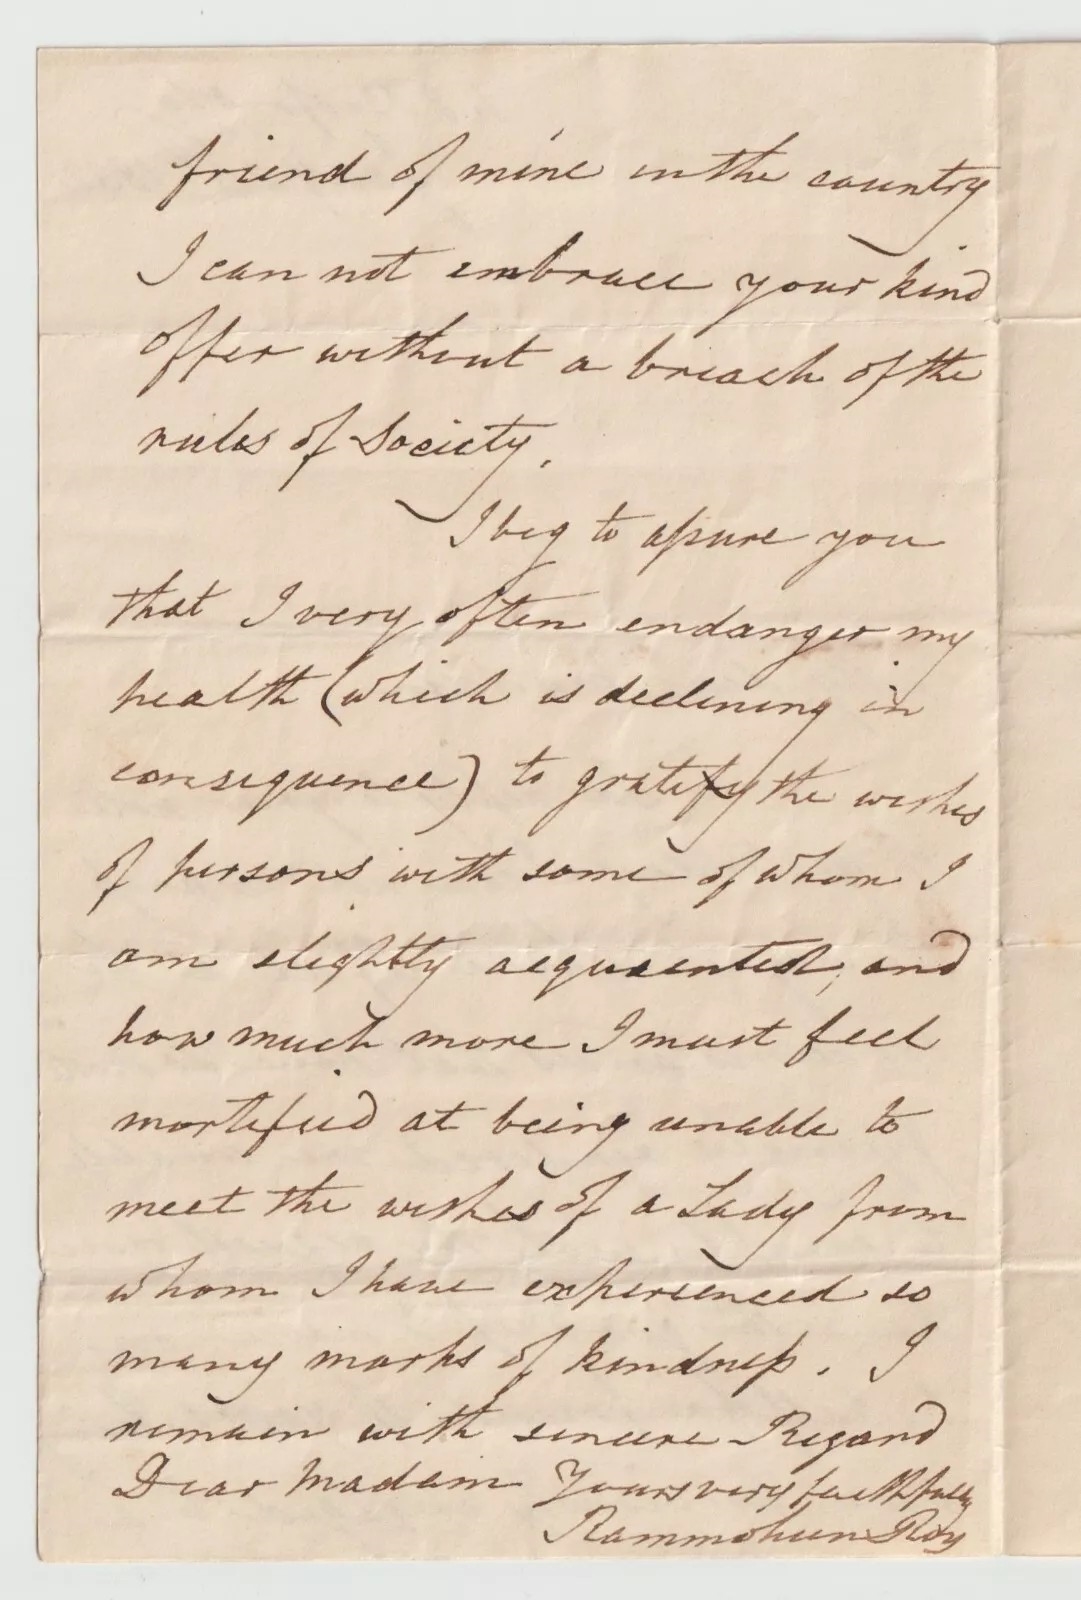 friend of mine in the country
I can not embrace your kind
offer without a breach of the
rules of Society.
I beg to aſsure you
that I very often endanger my
health (which is declining in
consequence) to gratify the wishes
of persons with some of whom I
am slightly acquainted, and
how much more I must feel
mortified at being unable to
meet the wishes of a Lady from
whom I have experienced so
many marks of kindneſs. I
remain with sincere Regard
Dear Madam Yours very faithfully
Rammohun Roy